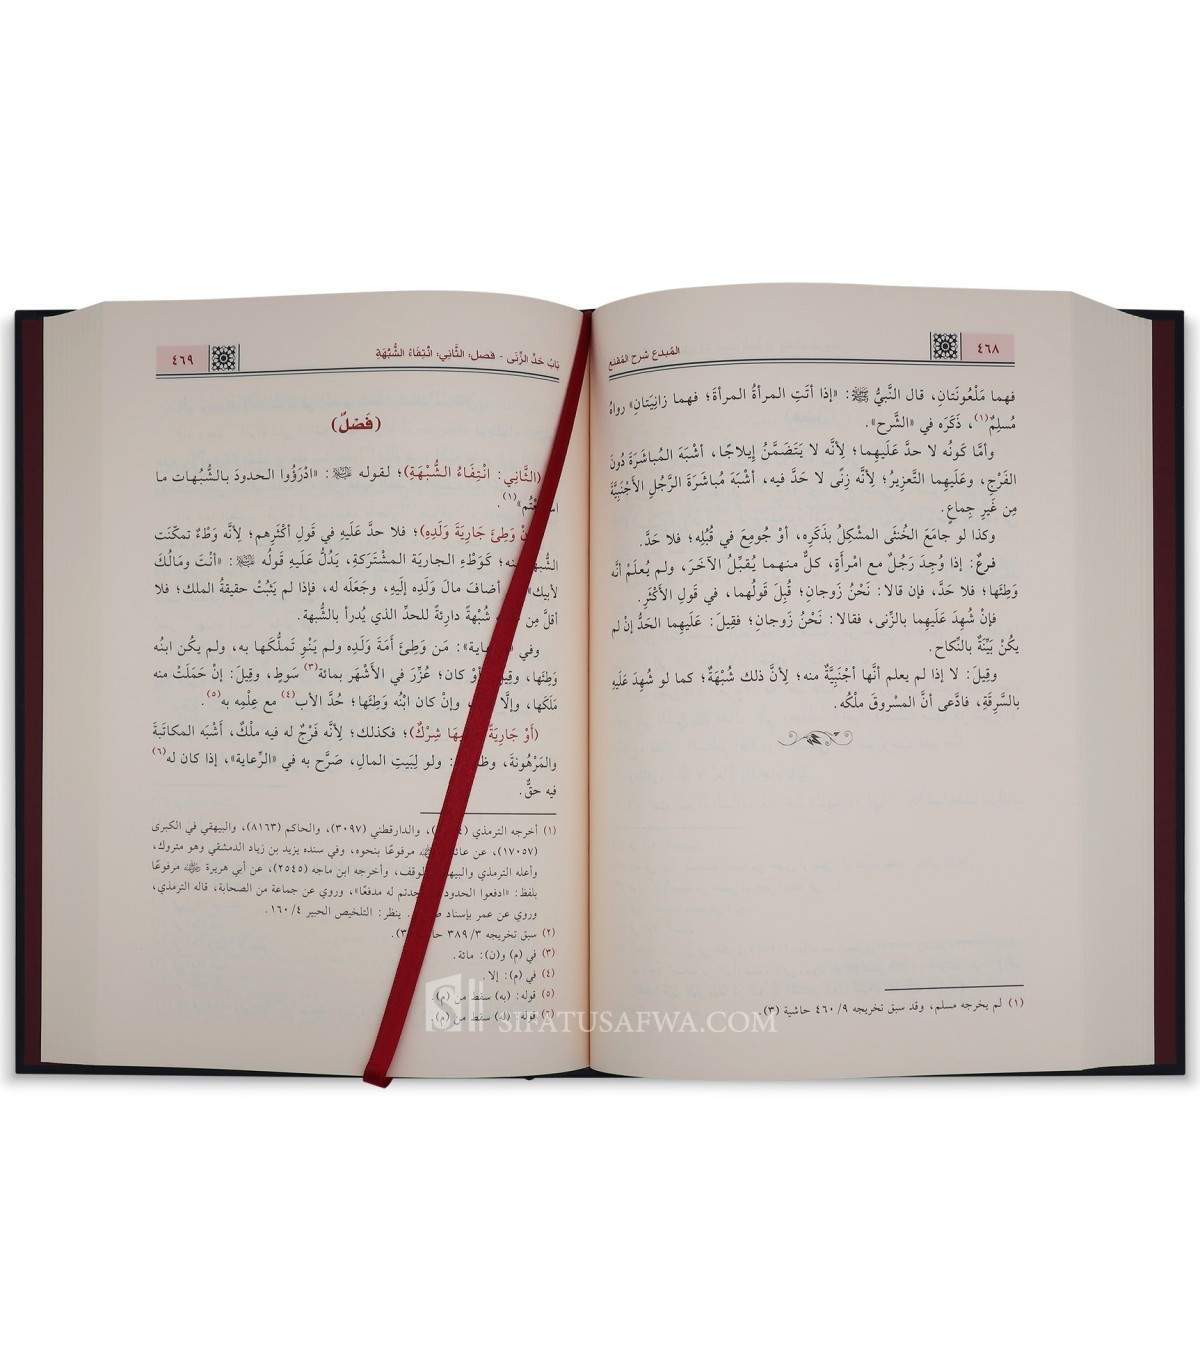 ٤٦٨
المُبدع شرح المُقنع
فهما مَلْعُونَتانِ، قال النَّبيُّ ﷺ: «إذا أتَتِ المرأةُ المرأةَ؛ فهما زانِيَتانِ» رواهُ
مُسلِمٌ(١)، ذَكَرَه في «الشَّرح».
وأمَّا كَونُه لا حدَّ عَلَيهِما؛ لِأنَّه لا يَتَضَمَّنُ إيلاجًا، أشْبَهَ المُباشَرَةَ دُونَ
الفَرْجِ، وعَلَيهِما التَّعزِيرُ؛ لِأنَّه زِنًى لا حَدَّ فيه، أشْبَهَ مُباشَرَةَ الرَّجُلِ الأَجْنَبِيَّةَ
مِن غَيرِ جِماعٍ.
وكذا لو جامَعَ الخُنثَى المشْكِلُ بذَكَرِه، أوْ جُومِعَ في قُبُلِه؛ فلا حَدَّ.
فرعٌ: إذا وُجِدَ رَجُلٌ مع امْرأَةٍ، كلٌّ منهما يُقبِّلُ الآخَرَ، ولم يُعلَمْ أنَّه
وَطِئَها؛ فلا حَدَّ، فإن قالا: نَحْنُ زَوجانِ؛ قُبِلَ قَولُهما، في قَولِ الأَكْثَرِ.
فإنْ شُهِدَ عَلَيهِما بالزِّنى، فقالا: نَحْنُ زَوجانِ؛ فقِيلَ: عَلَيهِما الحَدُّ إنْ لم
يكُنْ بَيِّنَةٌ بالنِّكاحِ.
وقِيلَ: لا إذا لم يعلم أنَّها أجْنَبِيَّةٌ منه؛ لِأنَّ ذلك شُبْهَةٌ؛ كما لو شُهِدَ عَلَيهِ
بالسَّرِقَةِ، فادَّعى أنَّ المسْروقَ مِلْكُه.
(١) لم يخرجه مسلم، وقد سبق تخريجه ٩/ ٤٦٠ حاشية (٣).
باب حَدِّ الزِّنَى - فصل: الثَّانِي: انْتِفَاءُ الشُّبْهَةِ
٤٦٩
(فَصْلٌ)
(الثَّانِي: انْتِفَاءُ الشُّبْهَةِ)؛ لقوله ﷺ: «ادْرَؤُوا الحدودَ بالشُّبُهات ما
(١).
وَطِئَ جَارِيَةَ وَلَدِهِ)؛ فلا حدَّ عَلَيهِ في قَولِ أكْثَرِهِم؛ لِأنَّه وَطْءٌ تمكّنَت
كوَطْءِ الجاريَة المشْتَرَكةِ، يَدُلُّ عَلَيهِ قَولُه ﷺ: «أنْتَ ومَالُكَ
لأبيك» أضافَ مالَ وَلَدِه إلَيهِ، وجَعَلَه له، فإذا لم يَثبُتْ حقيقةُ الملك؛ فلا
أقلَّ مِن شُبْهةً دارِئةً للحدِّ الذي يُدرأ بالشُّبهة.
وفي مَن وَطِئَ أمَةَ وَلَدِه ولم يَنْوِ تَملُّكَها به، ولم يكُن ابنُه
وَطِئَها، وقِيلَ أوْ كان؛ عُزِّرَ في الأَشْهَرِ بمائة(٣) سَوطٍ، وقِيلَ: إنْ حَمَلَتْ منه
مَلَكَها، وإلَّا وإنْ كان ابْنُه وَطِئَها؛ حُدَّ الأب(٤) مع عِلْمِه به(٥).
(أَوْ جَارِيَةً شِرْكٌ)؛ فكذلك؛ لِأنَّه فَرْجٌ له فيه ملْكٌ، أشْبَه المكاتَبَةَ
والمَرْهُونةَ، ولو لِبَيتِ المالِ، صَرَّح به في «الرِّعاية»، إذا كان له(٦)
فيه حقٌّ.
(١) أخرجه الترمذي والدارقطني (٣٠٩٧)، والحاكم (٨١٦٣)، والبيهقي في الكبرى
(١٧٠٥٧)، عن مرفوعًا بنحوه، وفي سنده يزيد بن زياد الدمشقي وهو متروك،
وأعله الترمذي والبيهقي وأخرجه ابن ماجه (٢٥٤٥)، عن أبي هريرة مرفوعًا
بلفظ: «ادفعوا الحدود وجدتم له مدفعًا»، وروي عن جماعة من الصحابة، قاله الترمذي،
وروي عن عمر بإسناد ينظر: التلخيص الحبير ٤/ ١٦٠.
(٢) سبق تخريجه ٣/ ٣٨٩
(٣) في (م) و(ن): مائة.
(٤) في (م): إلا.
(٥) قوله: (به) سقط من (م).
(٦) قوله: (له) سقط من (م).
SIFATUSAFWA.COM